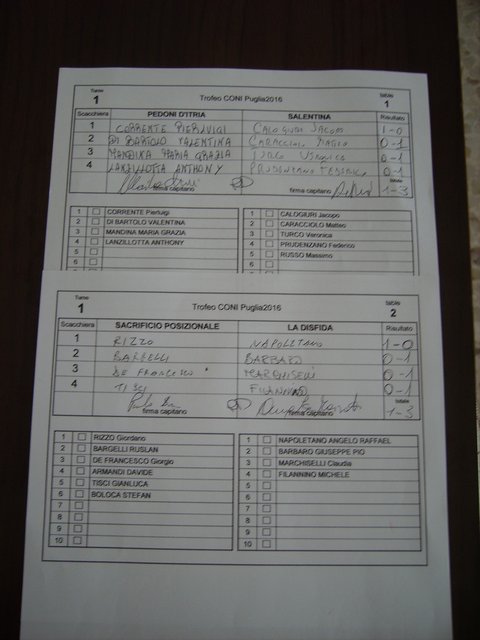 Turno Trofeo CONI Puglia2016 table
1 1
Scacchiera PEDONI D'ITRIA SALENTINA Risultato
1 CORRENTE PIERLUIGI CALOGIURI JACOPO 1-0
2 DI BARTOLO VALENTINA CARACCIOLO 0-1
3 MANDINA MARIA GRAZIA TURCO VERONICA 0-1
4 LANZILLOTTA ANTHONY PRUDENZANO FEDERICO 0-1
firma capitano firma capitano 1-3
1 CORRENTE Pierluigi 1 CALOGIURI Jacopo
2 DI BARTOLO VALENTINA 2 CARACCIOLO Matteo
3 MANDINA MARIA GRAZIA 3 TURCO Veronica
4 LANZILLOTTA ANTHONY 4 PRUDENZANO Federico
5 5 RUSSO Massimo
6 6
Turno Trofeo CONI Puglia2016 table
1 2
Scacchiera SACRIFICIO POSIZIONALE LA DISFIDA Risultato
1 RIZZO NAPOLETANO 1-0
2 BARGELLI BARBARO 0-1
3 DE FRANCESCO MARCHISELLI 0-1
4 TISCI FILANNINO 0-1
firma capitano firma capitano 1-3
1 RIZZO Giordano 1 NAPOLETANO ANGELO RAFFAEL
2 BARGELLI RUSLAN 2 BARBARO GIUSEPPE PIO
3 DE FRANCESCO Giorgio 3 MARCHISELLI Claudia
4 ARMANDI DAVIDE 4 FILANNINO MICHELE
5 TISCI GIANLUCA 5
6 BOLOCA STEFAN 6
7 7
8 8
9 9
10 10